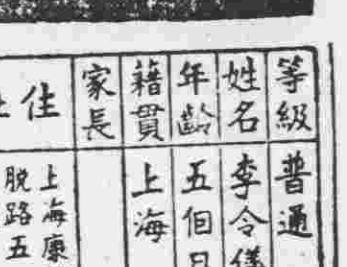 等級
普通
姓名
李令儀
年齡
五個月
籍貫
上海
家長
住
上海康
脫路五